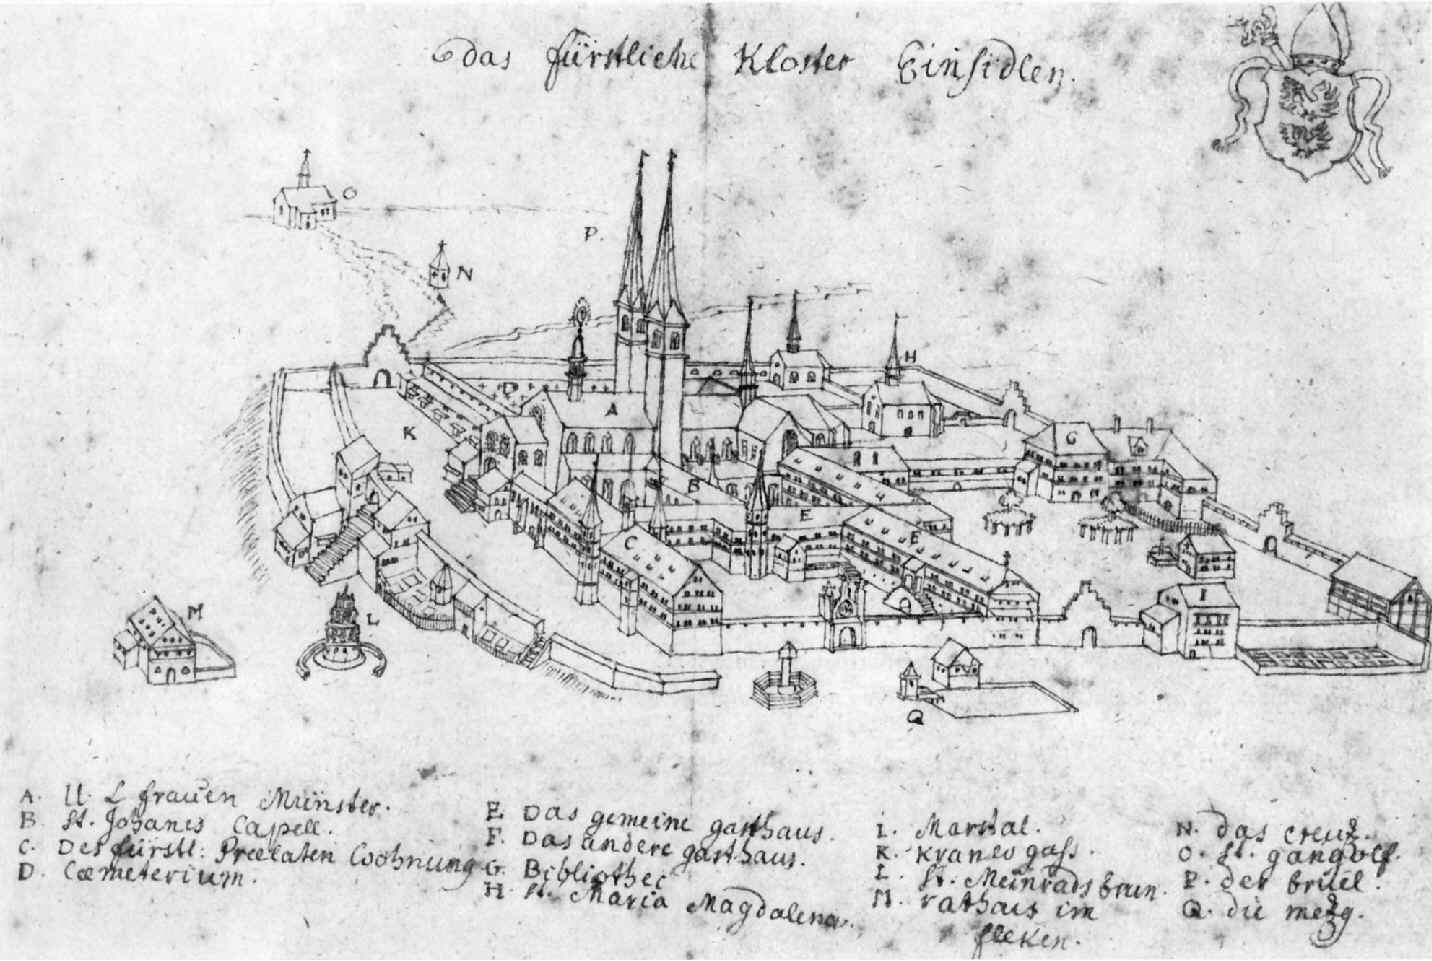 das fürstliche Kloster Einsidlen.
O
P.
N
H
D
A
K
G
B
E
E
C
I
M
L
Q
A. U. L frauen Münster.
B. St. Johanes Capell.
C. Des fürstl: Præelaten Woohnung
D. Cœmeterium.
E Das gemeine gasthaus.
F. Das andere gasthaus.
G. Bibliothec
H St. Maria Magdalena.
I. Marstal.
K. Kranes gass.
L. St. Meinrads brun.
M. rathaus im
fleken.
N. das creuz.
O. St. gangolf.
P. der brüel.
Q. die mezg.